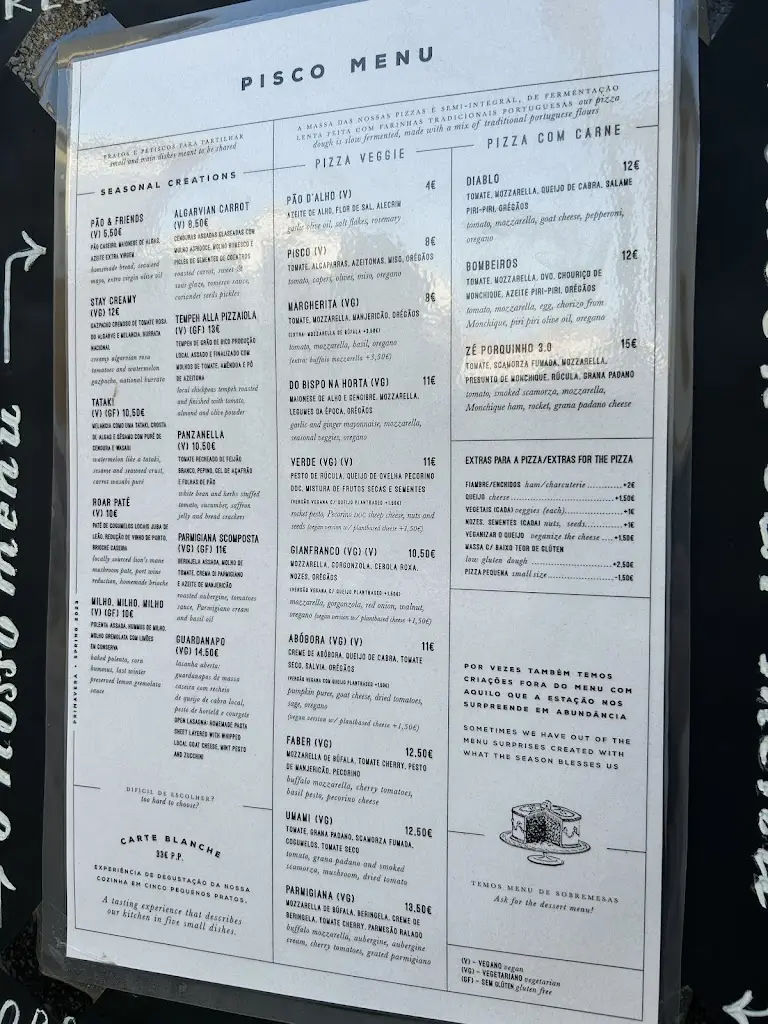 PISCO MENU
PRATOS E PETISCOS PARA PARTILHAR
small and main dishes meant to be shared
SEASONAL CREATIONS
PÃO & FRIENDS
(V) 6,50€
PÃO CASEIRO, MAIONESE DE ALGAS,
AZEITE EXTRA VIRGEM
homemade bread, seaweed
mayo, extra virgin olive oil
STAY CREAMY
(VG) 12€
GAZPACHO CREMOSO DE TOMATE ROSA
DO ALGARVE E MELANCIA, BURRATA
NACIONAL
creamy algarvian rosa
tomatoes and watermelon
gazpacho, national burrata
TATAKI
(V) (GF) 10,50€
MELANCIA COMO UMA TATAKI, CROSTA
DE ALGAS E SÉSAMO COM PURÉ DE
CENOURA E WASABI
watermelon like a tataki,
sesame and seaweed crust,
carrot wasabi puré
ROAR PATÉ
(V) 10€
PATÉ DE COGUMELOS LOCAIS JUBA DE
LEÃO, REDUÇÃO DE VINHO DO PORTO,
BRIOCHE CASEIRO
locally sourced lion's mane
mushroom paté, port wine
reduction, homemade brioche
MILHO, MILHO, MILHO
(V) (GF) 10€
POLENTA ASSADA, HUMMUS DE MILHO,
MOLHO GREMOLATA COM LIMÕES
EM CONSERVA
baked polenta, corn
hummus, last winter
preserved lemon gremolata
sauce
ALGARVIAN CARROT
(V) 8,50€
CENOURAS ASSADAS GLASEADAS COM
MOLHO AGRIDOCE, MOLHO ROMESCO E
PICLES DE SEMENTES DE COENTROS
roasted carrot, sweet &
sour glaze, romesco sauce,
coriander seeds pickles
TEMPEH ALLA PIZZAIOLA
(V) (GF) 13€
TEMPEH DE GRÃO DE BICO PRODUÇÃO
LOCAL ASSADO E FINALIZADO COM
MOLHOS DE TOMATE, AMÊNDOA E PÓ
DE AZEITONA
local chickpeas tempeh roasted
and finished with tomato,
almond and olive powder
PANZANELLA
(V) 10.50€
TOMATE RECHEADO DE FEIJÃO
BRANCO, PEPINO, GEL DE AÇAFRÃO
E FOLHAS DE PÃO
white bean and herbs stuffed
tomato, cucumber, saffron
jelly and bread crackers
PARMIGIANA SCOMPOSTA
(VG) (GF) 11€
BERINJELA ASSADA, MOLHO DE
TOMATE, CREMA DI PARMIGIANO
E AZEITE DE MANJERICÃO
roasted aubergine, tomatoes
sauce, Parmigiano cream
and basil oil
GUARDANAPO
(VG) 14,50€
lasanha aberta:
guardanapos de massa
caseira com recheio
de queijo de cabra local,
pesto de hortelã e courgete
OPEN LASAGNA: HOMEMADE PASTA
SHEET LAYERED WITH WHIPPED
LOCAL GOAT CHEESE, MINT PESTO
AND ZUCCHINI
DIFICIL DE ESCOLHER?
too hard to choose?
CARTE BLANCHE
33€ P.P.
EXPERIÊNCIA DE DEGUSTAÇÃO DA NOSSA
COZINHA EM CINCO PEQUENOS PRATOS.
A tasting experience that describes
our kitchen in five small dishes.
A MASSA DAS NOSSAS PIZZAS É SEMI-INTEGRAL, DE FERMENTAÇÃO
LENTA FEITA COM FARINHAS TRADICIONAIS PORTUGUESAS our pizza
dough is slow fermented, made with a mix of traditional portuguese flours
PIZZA VEGGIE
PÃO D'ALHO (V) 4€
AZEITE DE ALHO, FLOR DE SAL, ALECRIM
garlic olive oil, salt flakes, rosemary
PISCO (V) 8€
TOMATE, ALCAPARRAS, AZEITONAS, MISO, ORÉGÃOS
tomato, capers, olives, miso, oregano
MARGHERITA (VG) 8€
TOMATE, MOZZARELLA, MANJERICÃO, ORÉGÃOS
(EXTRA: MOZZARELLA DE BÚFALA +3,50€)
tomato, mozzarella, basil, oregano
(extra: buffalo mozzarella +3,50€)
DO BISPO NA HORTA (VG) 11€
MAIONESE DE ALHO E GENGIBRE, MOZZARELLA,
LEGUMES DA ÉPOCA, ORÉGÃOS
garlic and ginger mayonnaise, mozzarella,
seasonal veggies, oregano
VERDE (VG) (V) 11€
PESTO DE RÚCULA, QUEIJO DE OVELHA PECORINO
DOC, MISTURA DE FRUTOS SECAS E SEMENTES
(VERSÃO VEGANA C/ QUEIJO PLANTBASED +1,50€)
rocket pesto, Pecorino DOC sheep cheese, nuts and
seeds (vegan version w/ plantbased cheese +1,50€)
GIANFRANCO (VG) (V) 10.50€
MOZZARELLA, GORGONZOLA, CEBOLA ROXA,
NOZES, ORÉGÃOS
(VERSÃO VEGANA C/ QUEIJO PLANTBASED +1,50€)
mozzarella, gorgonzola, red onion, walnut,
oregano (vegan version w/ plantbased cheese +1,50€)
ABÓBORA (VG) (V) 11€
CREME DE ABÓBORA, QUEIJO DE CABRA, TOMATE
SECO, SALVIA, ORÉGÃOS
(VERSÃO VEGANA COM QUEIJO PLANTBASED +1,50€)
pumpkin puree, goat cheese, dried tomatoes,
sage, oregano
(vegan version w/ plantbased cheese +1,50€)
FABER (VG) 12.50€
MOZZARELLA DE BÚFALA, TOMATE CHERRY, PESTO
DE MANJERICÃO, PECORINO
buffalo mozzarella, cherry tomatoes,
basil pesto, pecorino cheese
UMAMI (VG) 12.50€
TOMATE, GRANA PADANO, SCAMORZA FUMADA,
COGUMELOS, TOMATE SECO
tomato, grana padano and smoked
scamorza, mushroom, dried tomato
PARMIGIANA (VG) 13,50€
MOZZARELLA DE BÚFALA, BERINGELA, CREME DE
BERINGELA, TOMATE CHERRY, PARMESÃO RALADO
buffalo mozzarella, aubergine, aubergine
cream, cherry tomatoes, grated parmigiano
PIZZA COM CARNE
DIABLO 12€
TOMATE, MOZZARELLA, QUEIJO DE CABRA, SALAME
PIRI-PIRI, ORÉGÃOS
tomato, mozzarella, goat cheese, pepperoni,
oregano
BOMBEIROS 12€
TOMATE, MOZZARELLA, OVO, CHOURIÇO DE
MONCHIQUE, AZEITE PIRI-PIRI, ORÉGÃOS
tomato, mozzarella, egg, chorizo from
Monchique, piri piri olive oil, oregano
ZÉ PORQUINHO 3.0 15€
TOMATE, SCAMORZA FUMADA, MOZZARELLA,
PRESUNTO DE MONCHIQUE, RÚCULA, GRANA PADANO
tomato, smoked scamorza, mozzarella,
Monchique ham, rocket, grana padano cheese
EXTRAS PARA A PIZZA/EXTRAS FOR THE PIZZA
FIAMBRE/ENCHIDOS ham/charcuterie ...........+2€
QUEIJO cheese ...........+1,50€
VEGETAIS (CADA) veggies (each) ...........+1€
NOZES, SEMENTES (CADA) nuts, seeds ...........+1€
VEGANIZAR O QUEIJO veganize the cheese ....+1.50€
MASSA C/ BAIXO TEOR DE GLÚTEN
low gluten dough ...........+2,50€
PIZZA PEQUENA small size ...........-1,50€
POR VEZES TAMBÉM TEMOS
CRIAÇÕES FORA DO MENU COM
AQUILO QUE A ESTAÇÃO NOS
SURPREENDE EM ABUNDÂNCIA
SOMETIMES WE HAVE OUT OF THE
MENU SURPRISES CREATED WITH
WHAT THE SEASON BLESSES US
TEMOS MENU DE SOBREMESAS
Ask for the dessert menu!
(V) – VEGANO vegan
(VG) – VEGETARIANO vegetarian
(GF) – SEM GLÚTEN gluten free
PRIMAVERA • SPRING 2023
O nosso menu